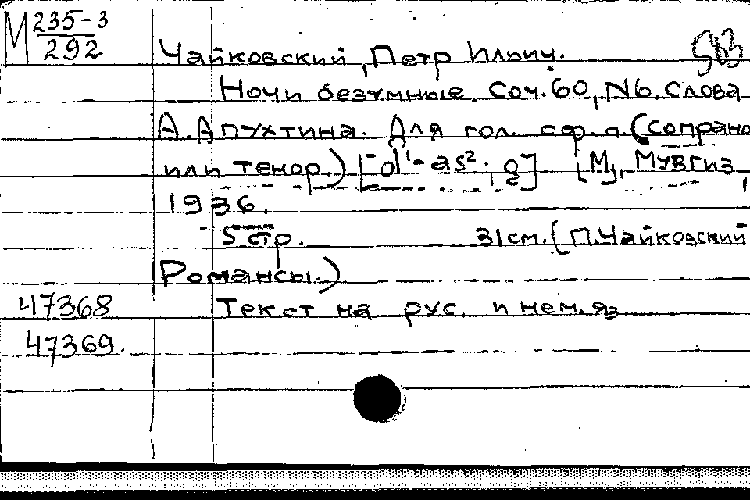 М 235-3
292
Чайковский, Петр Ильич.
Ночи безумные. Соч. 60, N6. Слова
А. Апухтина. Для гол. с ф.-п. (сопрано
или тенор.) [d¹- as². g] [М], Музгиз,
1936.
5 стр. 31 см. (П. Чайковский
Романсы.)
47368 Текст на рус. и нем. яз
47369.